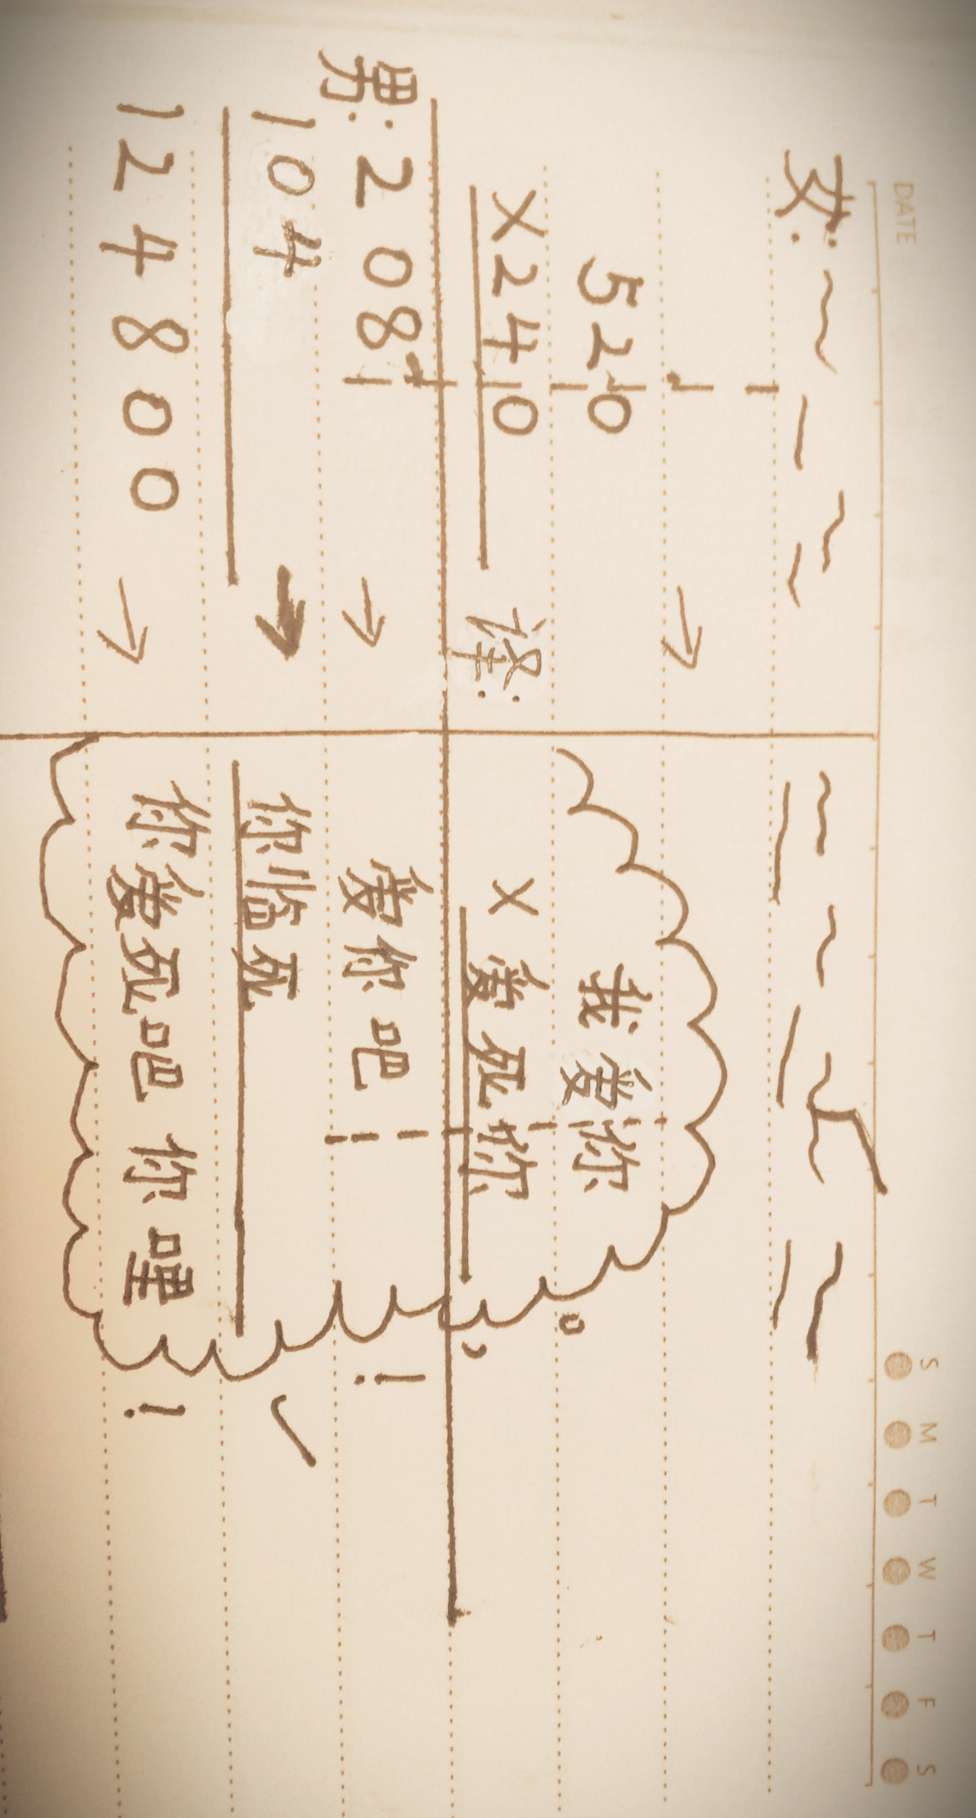 DATE
S M T W T F S
女:
520 我爱你。
×240 译: ×爱死你,
男: 208 → 爱你吧!
104 → 你临死
124800 → 你爱死吧你哩!